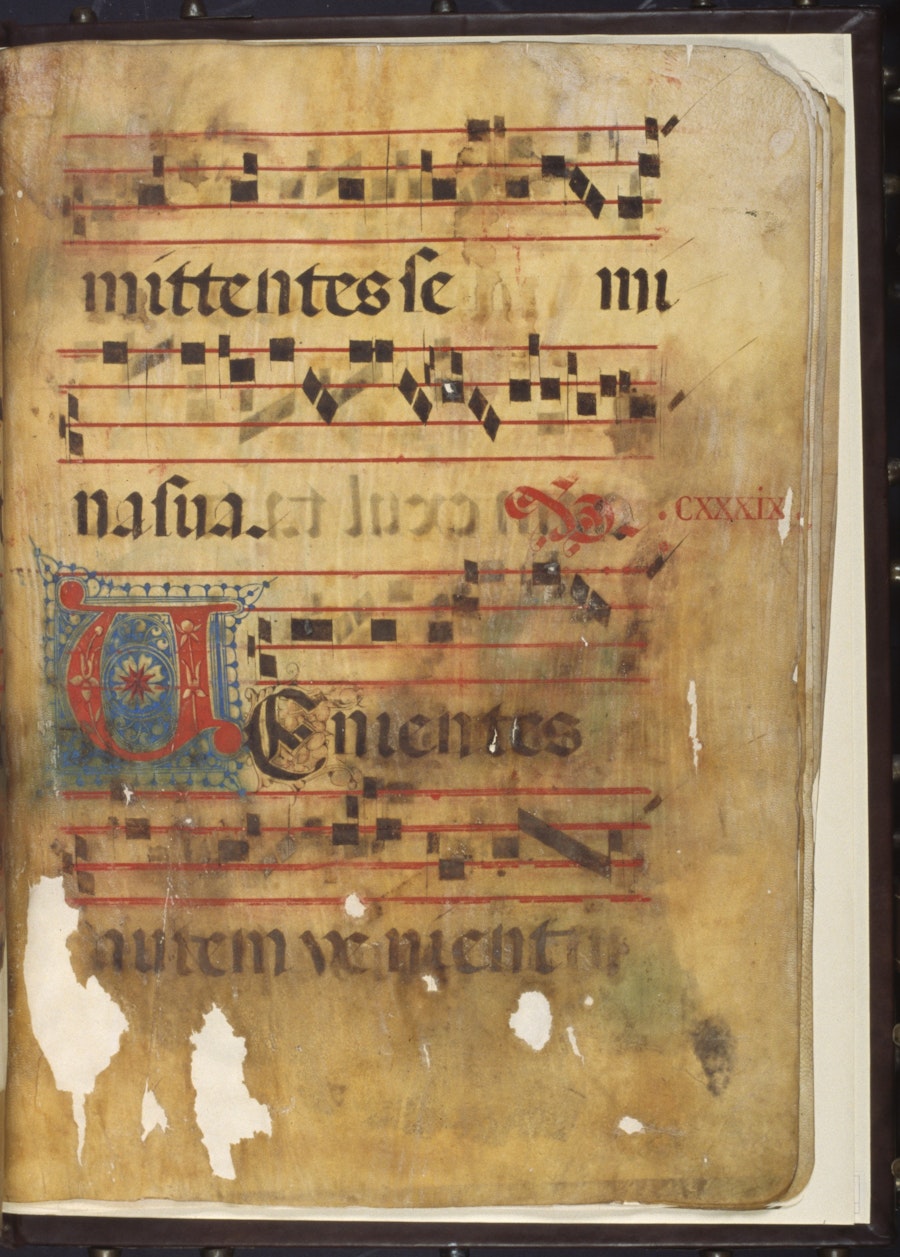 mittentes se mi
na sua. . CXXXIX .
VEnientes
autem ve nient